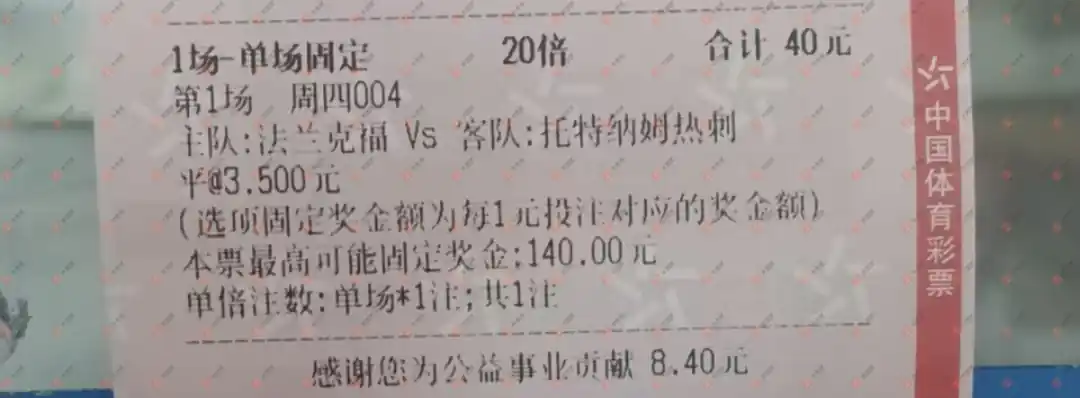 1场-单场固定 20倍 合计 40元
第1场 周四004
主队:法兰克福 Vs 客队:托特纳姆热刺
平@3.500元
(选项固定奖金额为每1元投注对应的奖金额)
本票最高可能固定奖金:140.00元
单倍注数:单场*1注;共1注
感谢您为公益事业贡献 8.40元
中国体育彩票